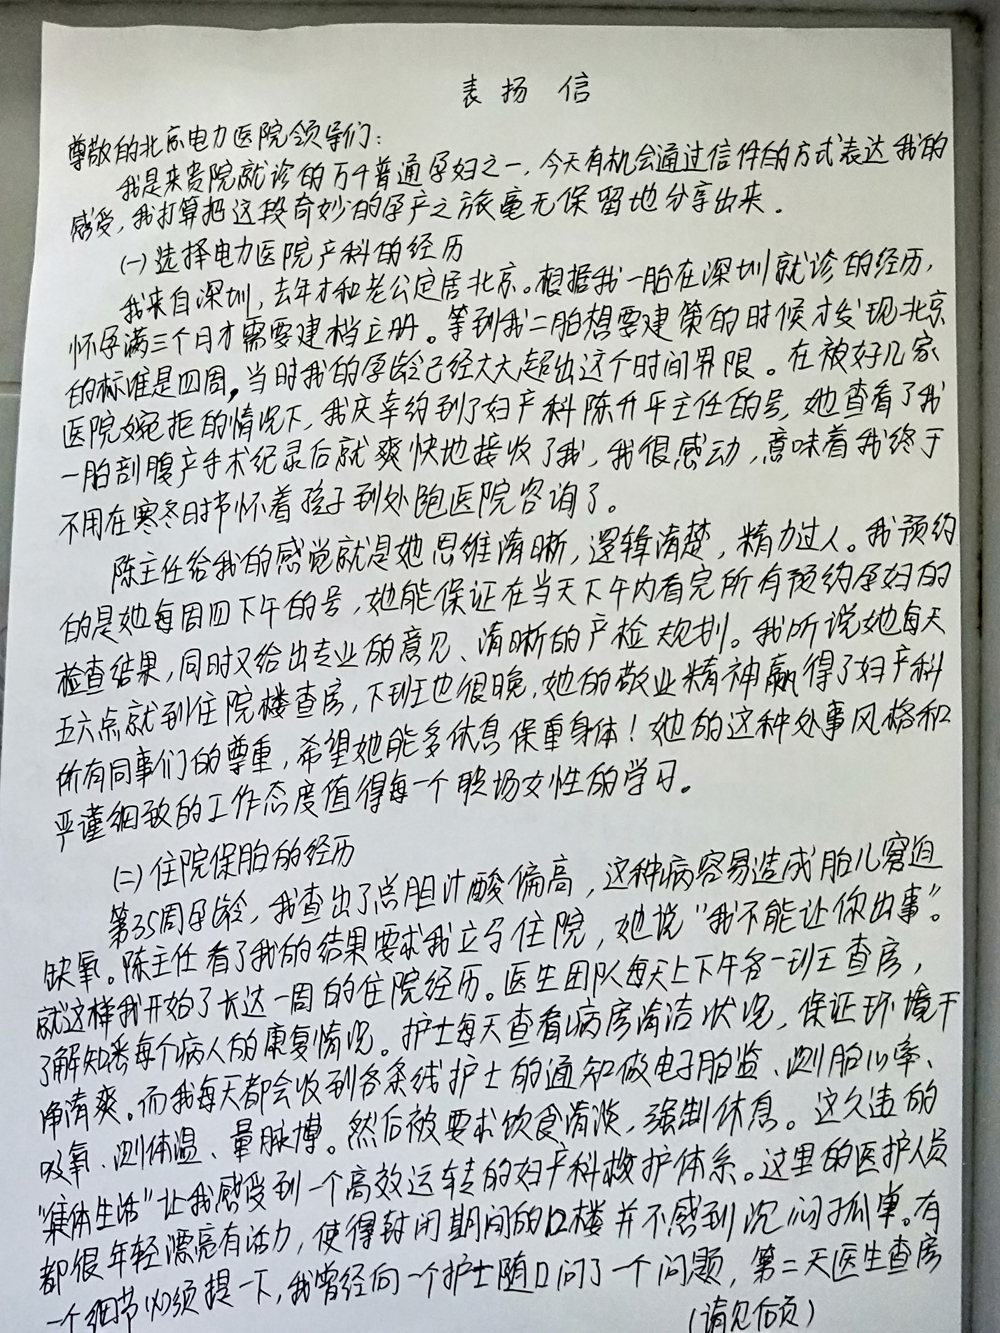 表扬信
尊敬的北京电力医院领导们：
我是来贵院就诊的万千普通孕妇之一，今天有机会通过信件的方式表达我的
感受，我打算把这段奇妙的孕产之旅毫无保留地分享出来。
(一)选择电力医院产科的经历
我来自深圳，去年才和老公定居北京。根据我一胎在深圳就诊的经历，
怀孕满三个月才需要建档立册。等到我二胎想要建策的时候才发现北京
的标准是四周，当时我的孕龄已经大大超出这个时间界限。在被好几家
医院婉拒的情况下，我庆幸约到了妇产科陈升平主任的号，她查看了我
一胎剖腹产手术纪录后就爽快地接收了我，我很感动，意味着我终于
不用在寒冬时节怀着孩子到处跑医院咨询了。
陈主任给我的感觉就是她思维清晰，逻辑清楚，精力过人。我预约
的是她每周四下午的号，她能保证在当天下午内看完所有预约孕妇的
检查结果，同时又给出专业的意见、清晰的产检规划。我听说她每天
五六点就到住院楼查房，下班也很晚，她的敬业精神赢得了妇产科
所有同事们的尊重，希望她能多休息保重身体！她的这种处事风格和
严谨细致的工作态度值得每一个职场女性的学习。
(二)住院保胎的经历
第35周孕龄，我查出了总胆汁酸偏高，这种病容易造成胎儿窘迫
缺氧。陈主任看了我的结果要求我立马住院，她说“我不能让你出事”。
就这样我开始了长达一周的住院经历。医生团队每天上下午各一班查房，
了解知悉每个病人的康复情况。护士每天查看病房清洁状况，保证环境干
净清爽。而我每天都会收到各条线护士的通知做电子胎监、测胎心率、
吸氧、测体温、量脉搏。然后被要求饮食清淡，强制休息。这久违的
“集体生活”让我感受到一个高效运转的妇产科救护体系。这里的医护人员
都很年轻漂亮有活力，使得封闭期间的口楼并不感到沉闷孤单。有
一个细节必须提一下，我曾经向一个护士随口问了一个问题，第二天医生查房
(请见后页)